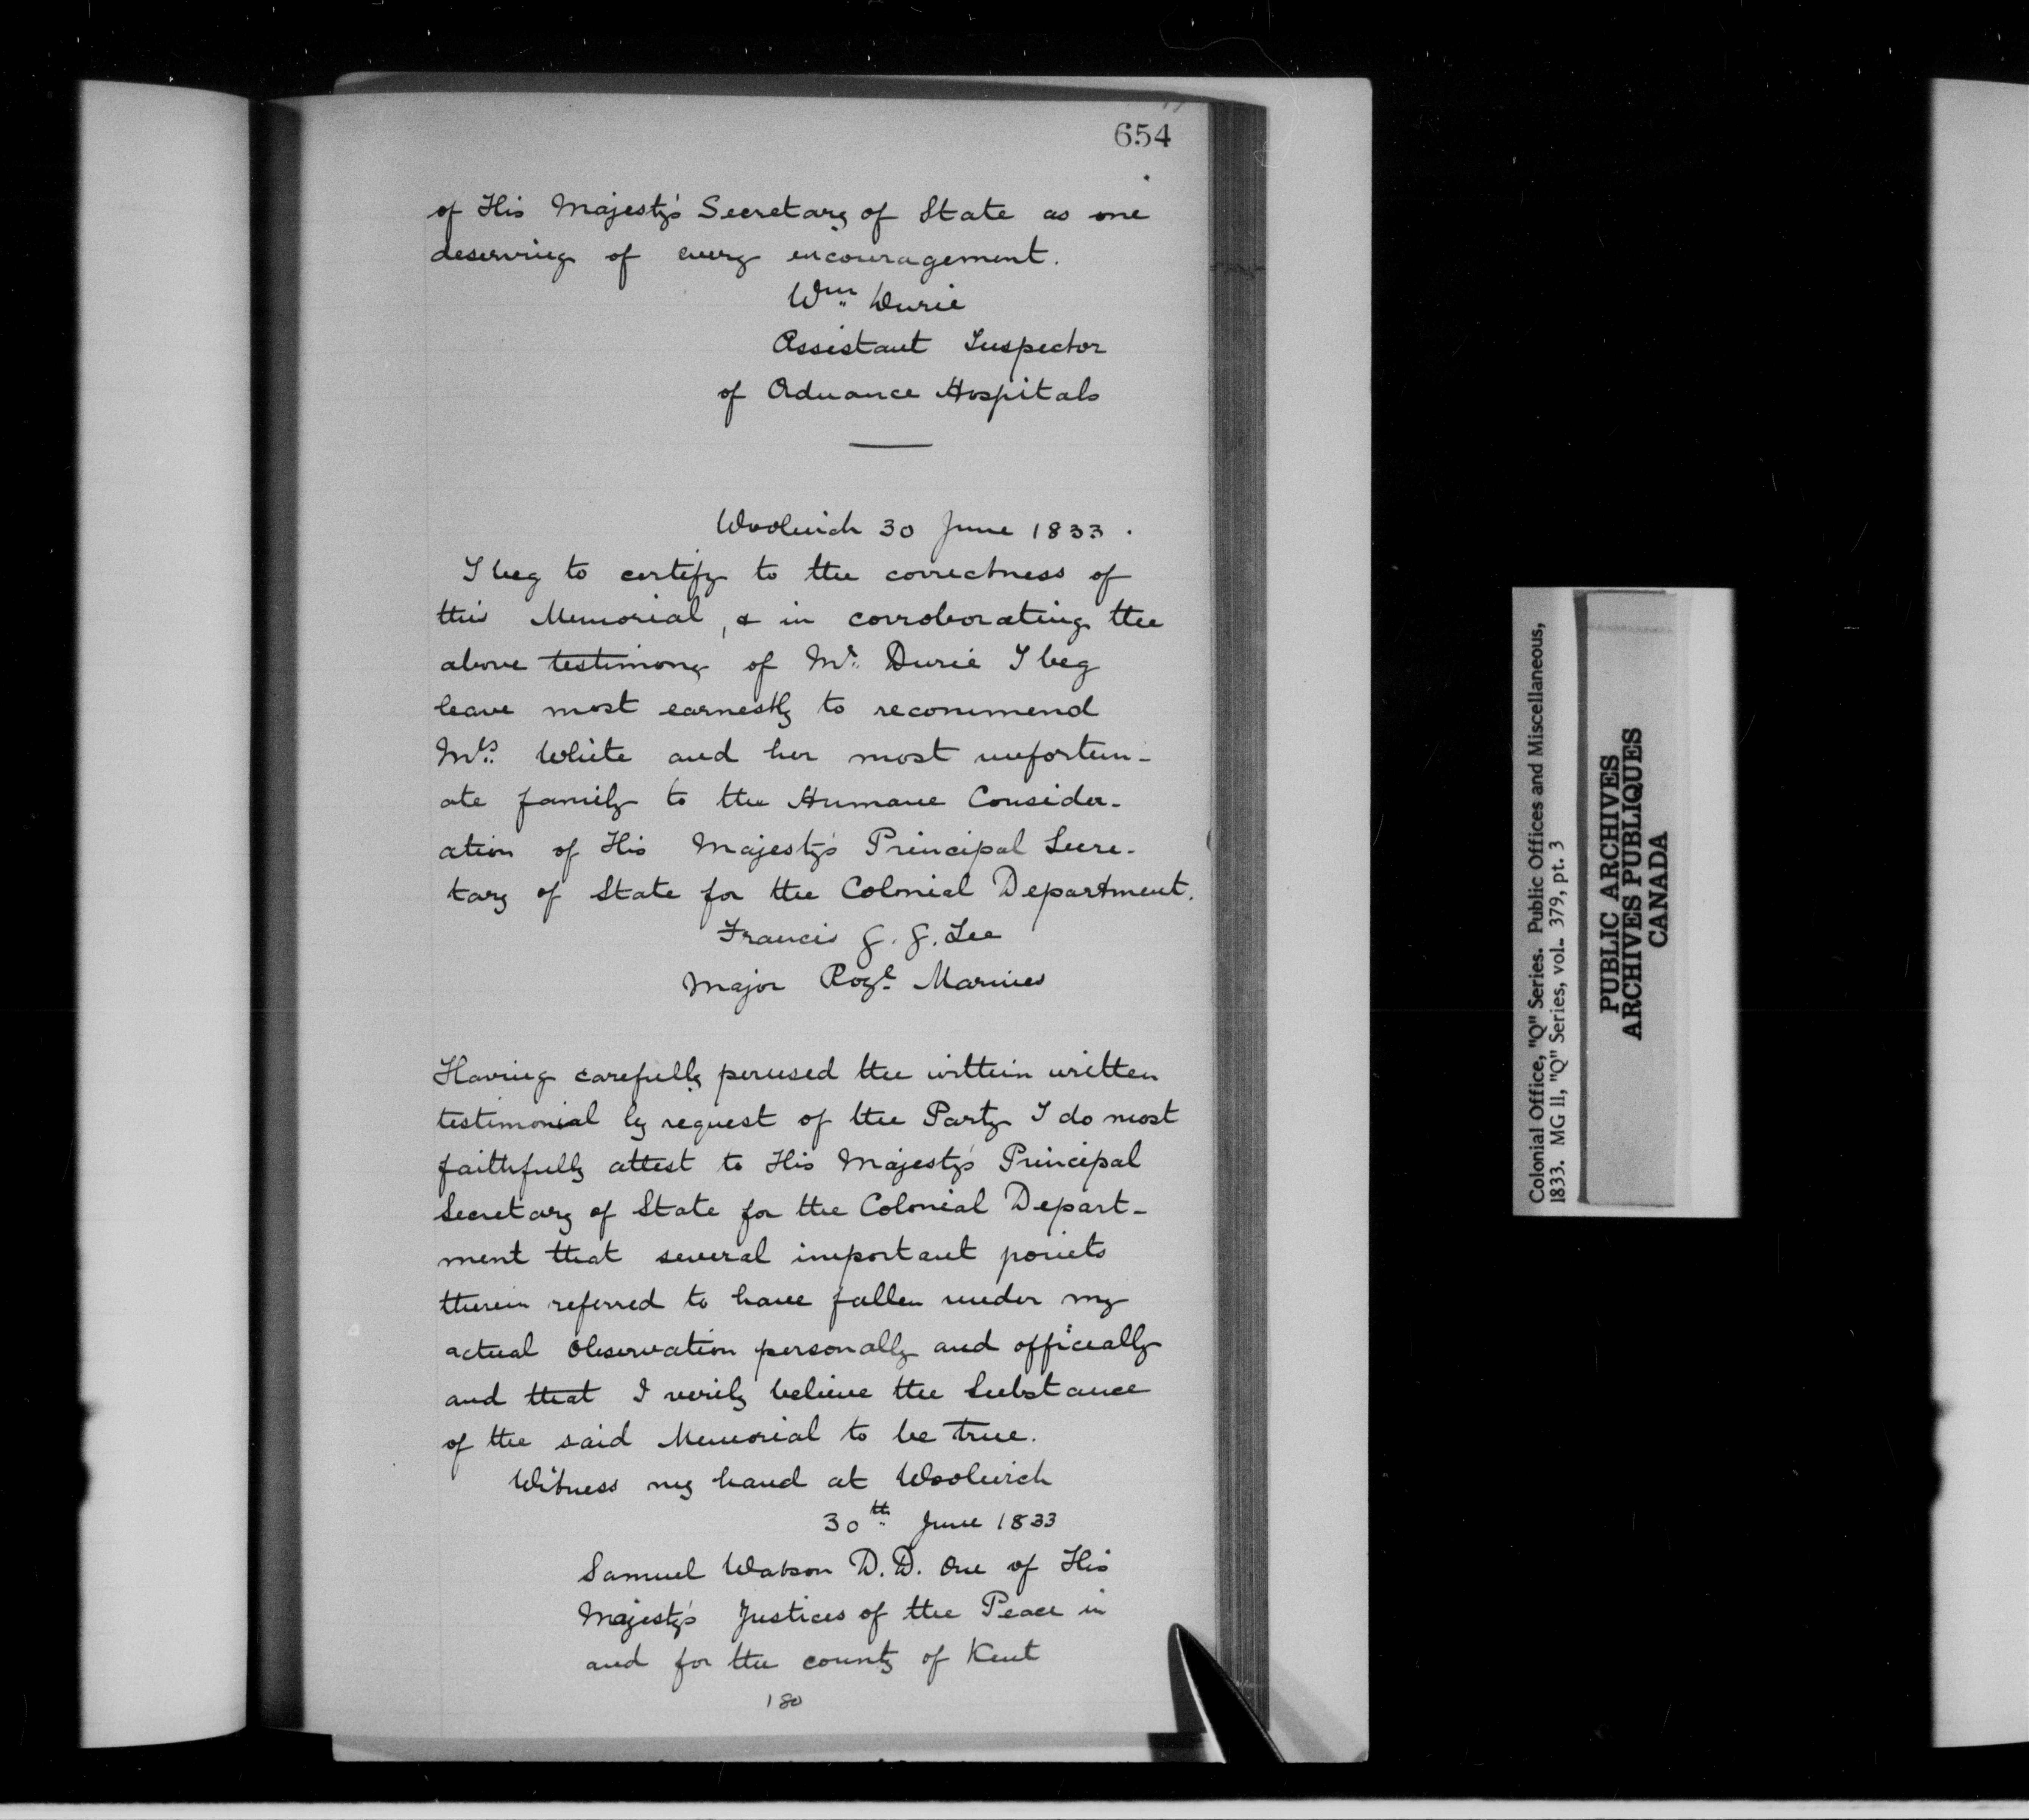 654
of His Majesty's Secretary of State as one
deserving of every encouragement.
Wm Durie
Assistant Inspector
of Ordnance Hospitals
Woolwich 30 June 1833.
I beg to certify to the correctness of
this Memorial, & in corroborating the
above testimony of Mr. Durie I beg
leave most earnestly to recommend
Mrs. White and her most unfortun-
ate family to the Humane Consider-
ation of His Majesty's Principal Secre-
tary of State for the Colonial Department.
Francis J. J. Lee
Major Royl. Marines
Having carefully perused the within written
testimonial by request of the Party I do most
faithfully attest to His Majesty's Principal
Secretary of State for the Colonial Depart-
ment that several important points
therein referred to have fallen under my
actual observation personally and officially
and that I verily believe the substance
of the said Memorial to be true.
Witness my hand at Woolwich
30th June 1833
Samuel Watson D.D. One of His
Majesty's Justices of the Peace in
and for the county of Kent
180
Colonial Office, "Q" Series. Public Offices and Miscellaneous,
1833. MG 11, "Q" Series, vol. 379, pt. 3
PUBLIC ARCHIVES
ARCHIVES PUBLIQUES
CANADA